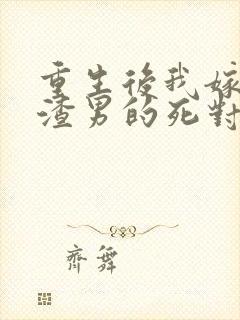 重生後我嫁
渣男的死對
齊舞